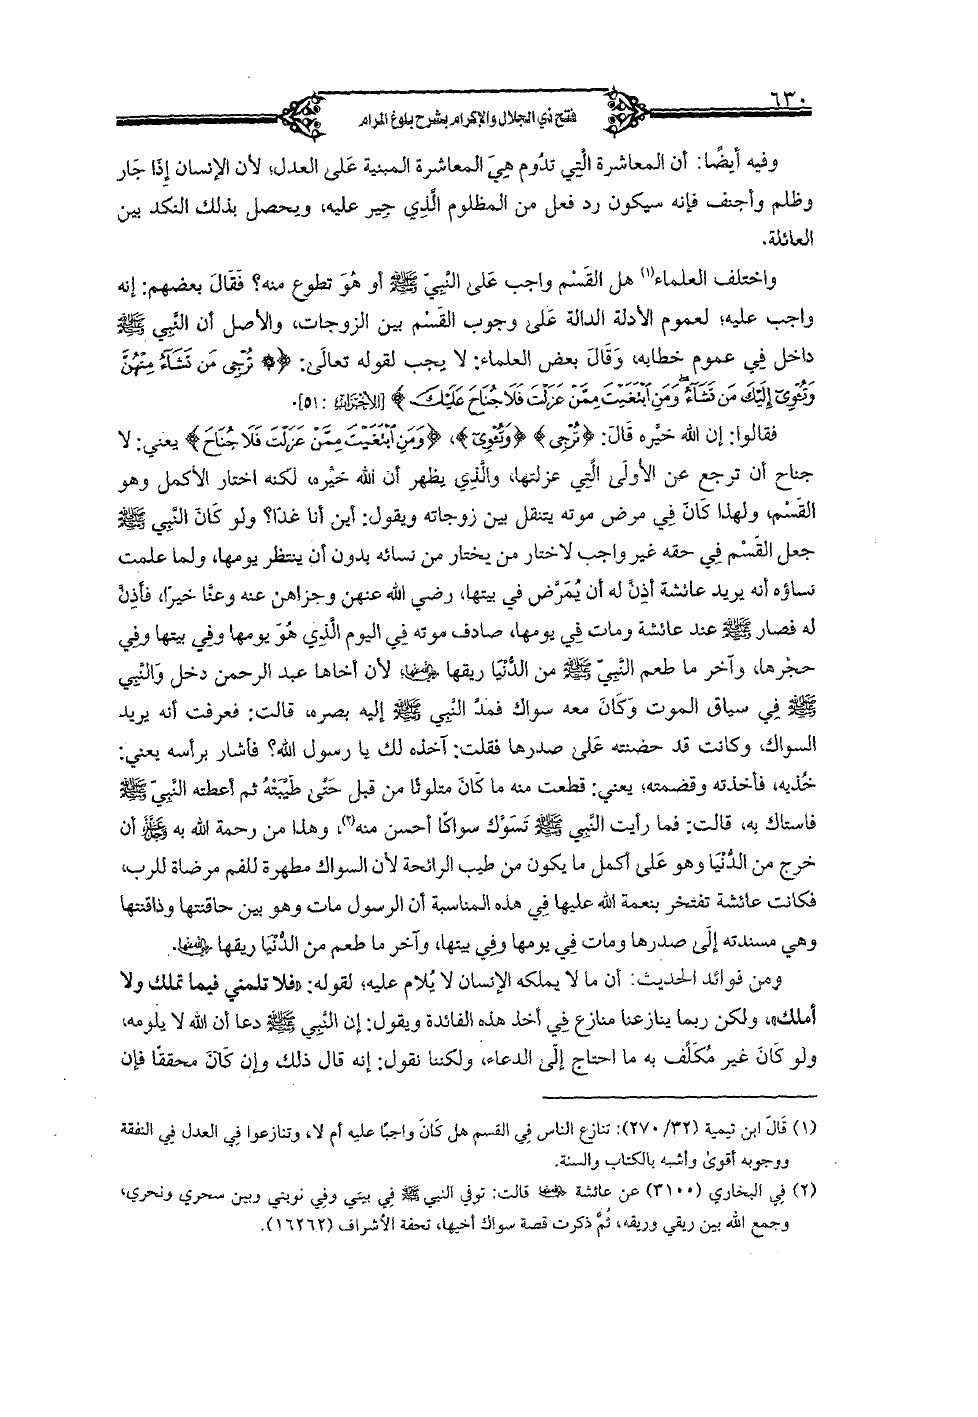 ٦٣٠
فتح ذي الجلال والإكرام بشرح بلوغ المرام
وفيه أيضًا: أن المعاشرة الَّتِي تدُوم هِيَ المعاشرة المبنية عَلَى العدل؛ لأن الإنسان إِذَا جار
وظلم وأجنف فإنه سيكون رد فعل من المظلوم الَّذِي جير عليه، ويحصل بذلك النكد بين
العائلة.
واختلف العلماء(١) هل القَسْم واجب عَلَى النَّبِيّ ﷺ أو هُوَ تطوع منه؟ فَقَالَ بعضهم: إنه
واجب عليه؛ لعموم الأدلة الدالة عَلَى وجوب القَسْم بين الزوجات، والأصل أن النَّبِي ﷺ
داخل فِي عموم خطابه، وَقَالَ بعض العلماء: لا يجب لقوله تعالَى: ﴿۞ تُرْجِى مَن تَشَآءُ مِنْهُنَّ
وَتُـْٔوِىٓ إِلَيْكَ مَن تَشَآءُ ۖ وَمَنِ ٱبْتَغَيْتَ مِمَّنْ عَزَلْتَ فَلَا جُنَاحَ عَلَيْكَ﴾ [الأحزاب: ٥١].
فقالوا: إن الله خيَّره قَالَ: ﴿تُرْجِى﴾ ﴿وَتُـْٔوِىٓ﴾، ﴿وَمَنِ ٱبْتَغَيْتَ مِمَّنْ عَزَلْتَ فَلَا جُنَاحَ﴾ يعني: لا
جناح أن ترجع عن الأولَى الَّتِي عزلتها، والَّذِي يظهر أن الله خيَّره، لكنه اختار الأكمل وهو
القَسْم، ولهذا كَانَ فِي مرض موته يتنقل بين زوجاته ويقول: أين أنا غدًا؟ ولو كَانَ النَّبِي ﷺ
جعل القَسْم فِي حقه غير واجب لاختار من يختار من نسائه بدون أن ينتظر يومها، ولما علمت
نساؤه أنه يريد عائشة أذِنَّ له أن يُمَرَّض فِي بيتها، رضي الله عنهن وجزاهن عنه وعنَّا خيرًا، فأذِنَّ
له فصار ﷺ عند عائشة ومات فِي يومها، صادف موته فِي اليوم الَّذِي هُوَ يومها وفِي بيتها وفِي
حجْرها، وآخر ما طعم النَّبِيّ ﷺ من الدُّنْيَا ريقها رضي الله عنها؛ لأن أخاها عبد الرحمن دخل وَالنَّبِي
ﷺ فِي سياق الموت وَكَانَ معه سواك فمدَّ النَّبِي ﷺ إليه بصره، قالت: فعرفت أنه يريد
السواك، وكانت قد حضنته عَلَى صدرها فقلت: آخذه لك يا رسول الله؟ فأشار برأسه يعني:
خُذيه، فأخذته وقضمته؛ يعني: قطعت منه ما كَانَ متلوثًا من قبل حَتَّى طَيَّبَتْهُ ثم أعطته النَّبِيّ ﷺ
فاستاك به، قالت: فما رأيت النَّبِي ﷺ تَسَوَّكَ سواكًا أحسن منه(٢)، وهذا من رحمة الله به ﷺ أن
خرج من الدُّنْيَا وهو عَلَى أكمل ما يكون من طيب الرائحة لأن السواك مطهرة للفم مرضاة للرب،
فكانت عائشة تفتخر بنعمة الله عليها فِي هذه المناسبة أن الرسول مات وهو بين حاقنتها وذاقنتها
وهي مسندته إلَى صدرها ومات فِي يومها وفِي بيتها، وآخر ما طعم من الدُّنْيَا ريقها رضي الله عنها.
ومن فوائد الحديث: أن ما لا يملكه الإنسان لا يُلام عليه؛ لقوله: «فلا تلمني فيما تملك ولا
أملك»، ولكن ربما ينازعنا منازع فِي أخذ هذه الفائدة ويقول: إن النَّبِي ﷺ دعا أن الله لا يلومه،
ولو كَانَ غير مُكَلَّف به ما احتاج إلَى الدعاء، ولكننا نقول: إنه قال ذلك وإن كَانَ محققًا فإن
(١) قَالَ ابن تيمية (٣٢/ ٢٧٠): تنازع الناس فِي القسم هل كَانَ واجبًا عليه أم لا، وتنازعوا فِي العدل فِي النفقة
ووجوبه أقوى وأشبه بالكتاب والسنة.
(٢) فِي البخاري (٣١٠٠) عن عائشة رضي الله عنها قالت: توفي النبي ﷺ فِي بيتي وفِي نوبتي وبين سحري ونحري،
وجمع الله بين ريقي وريقه، ثُمَّ ذكرت قصة سواك أخيها، تحفة الأشراف (١٦٢٦٢).